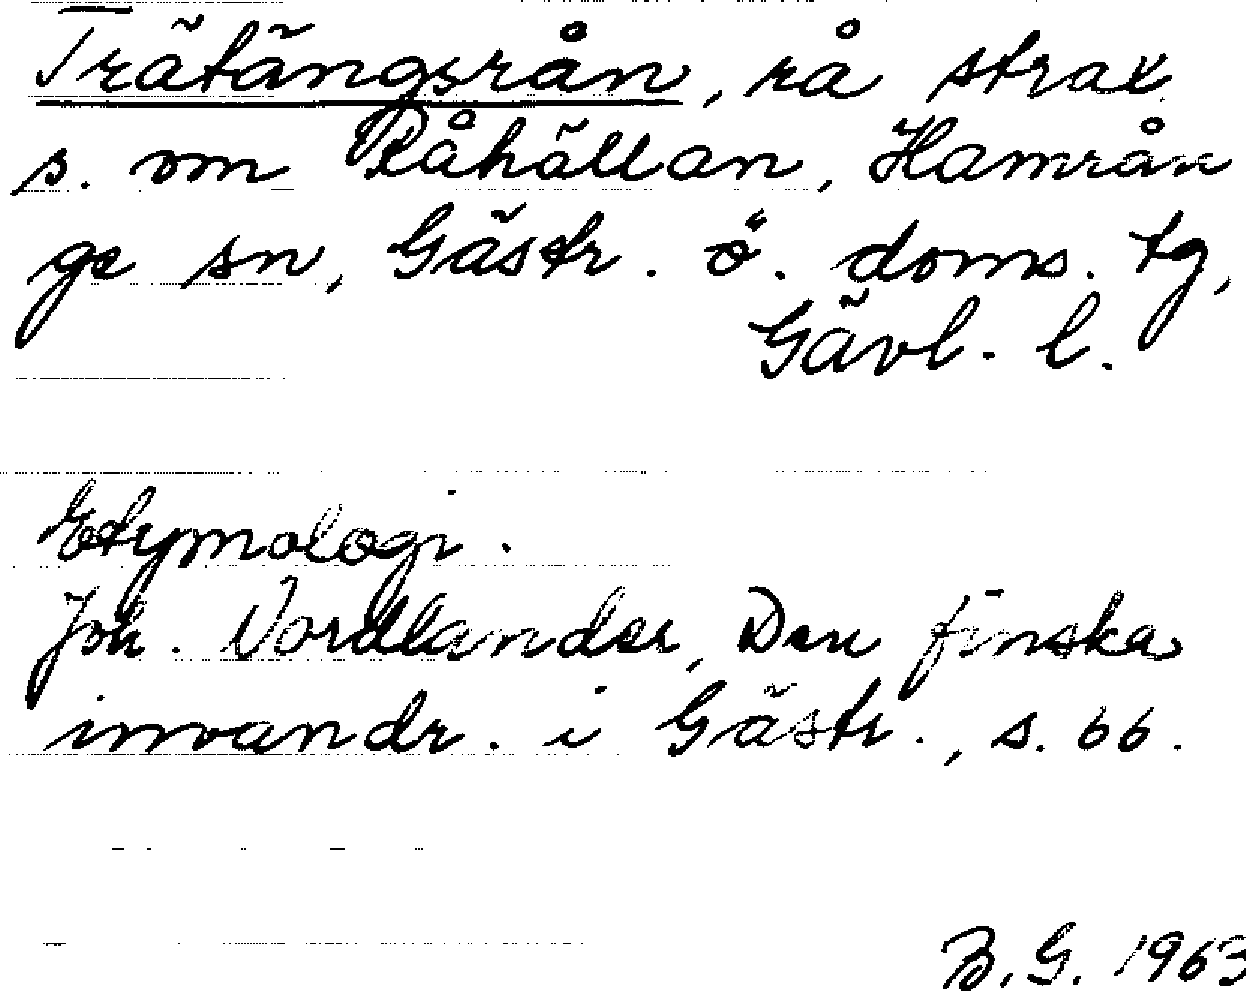 Trätängsrån, rå strax
s. om Råhällan, Hamrån
ge sn, Gästr. ö. doms. tg,
Gävl. l.
Etymologi.
Joh. Nordlander, Den finska
invandr. i Gästr., s. 66.
B. G. 1963